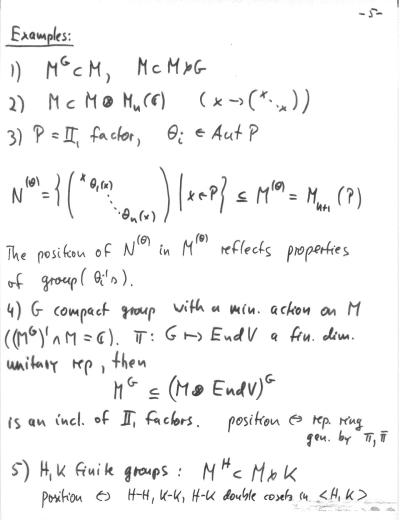 -5-
Examples:
1) M^G ⊂ M, M ⊂ M⋊G
2) M ⊂ M ⊗ M_n(ℂ) (x → (x ⋱ x))
3) P = II₁ factor, θ_i ∈ Aut P
N^(θ) = { ( x θ₁(x) ⋱ θ_n(x) ) | x ∈ P } ⊆ M^(θ) = M_{n+1}(P)
The position of N^(θ) in M^(θ) reflects properties
of group(θ_i's).
4) G compact group with a min. action on M
((M^G)' ∩ M = ℂ). π: G ↦ End V a fin. dim.
unitary rep, then
M^G ⊆ (M ⊗ End V)^G
is an incl. of II₁ factors. position ⇔ rep. ring
gen. by π, π̄
5) H, K finite groups: M^H ⊂ M⋊K
position ⇔ H-H, K-K, H-K double cosets in <H, K>